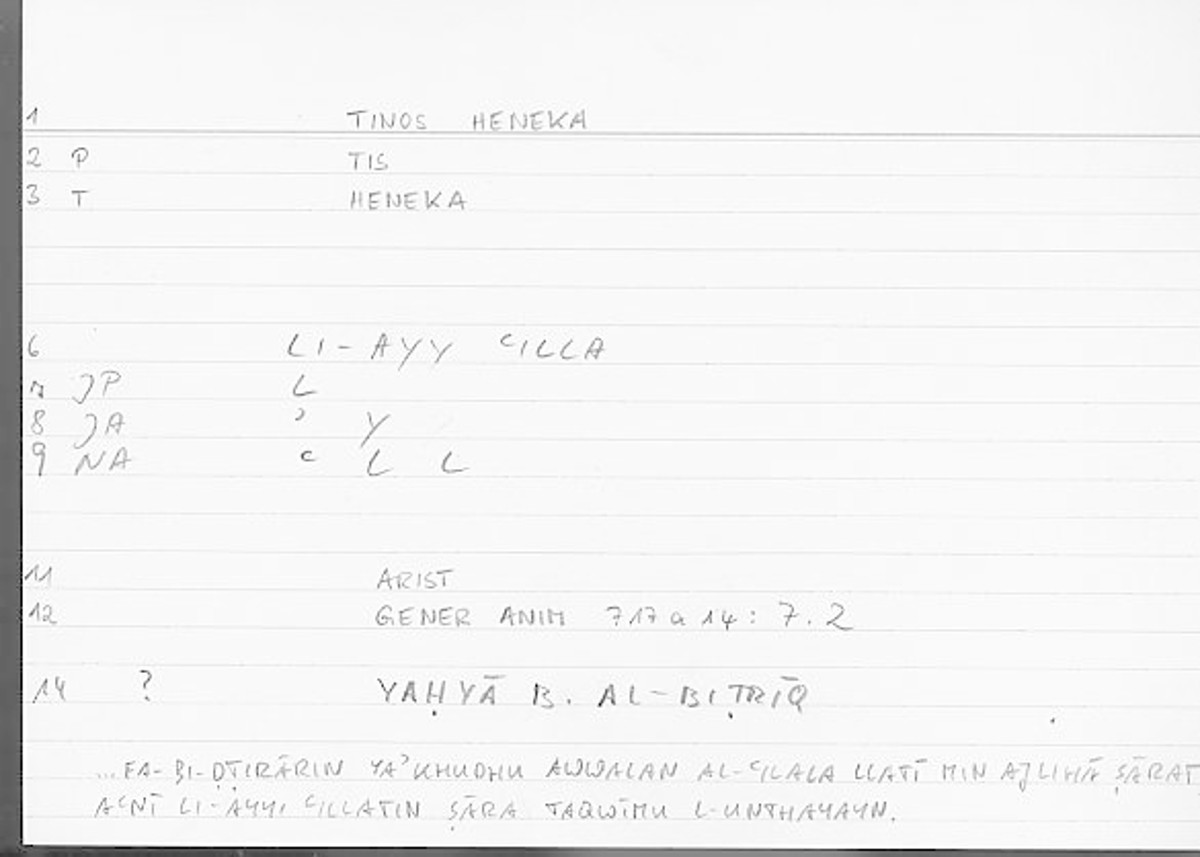 1 TINOS HENEKA
2 P TIS
3 T HENEKA
6 LI-AYY ʿILLA
7 JP L
8 JA ʾ Y
9 NA ʿ L L
11 ARIST
12 GENER ANIM 717 a 14: 7.2
14 ? YAḤYĀ B. AL-BIṬRĪQ
...FA-BI-ḌṬIRĀRIN YAʾKHUDHU AWWALAN AL-ʿILALA LLATĪ MIN AJLIHĀ ṢĀRAT
AʿNĪ LI-AYYI ʿILLATIN ṢĀRA TAQWĪMU L-UNTHAYAYN.